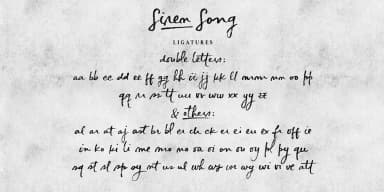 Siren Song
LIGATURES
double letters:
aa bb cc dd ee ff gg hh ii jj kk ll mm nn oo pp
qq rr ss tt uu vv ww xx yy zz
& others:
al ar at aj ast br bl er ch ck er ei eu ex fr off ie
in ko ki li me mo no oa oi on ou oy pl py qu
sq st sl sp oy nt us ul wh ws or wy wi vi ve att